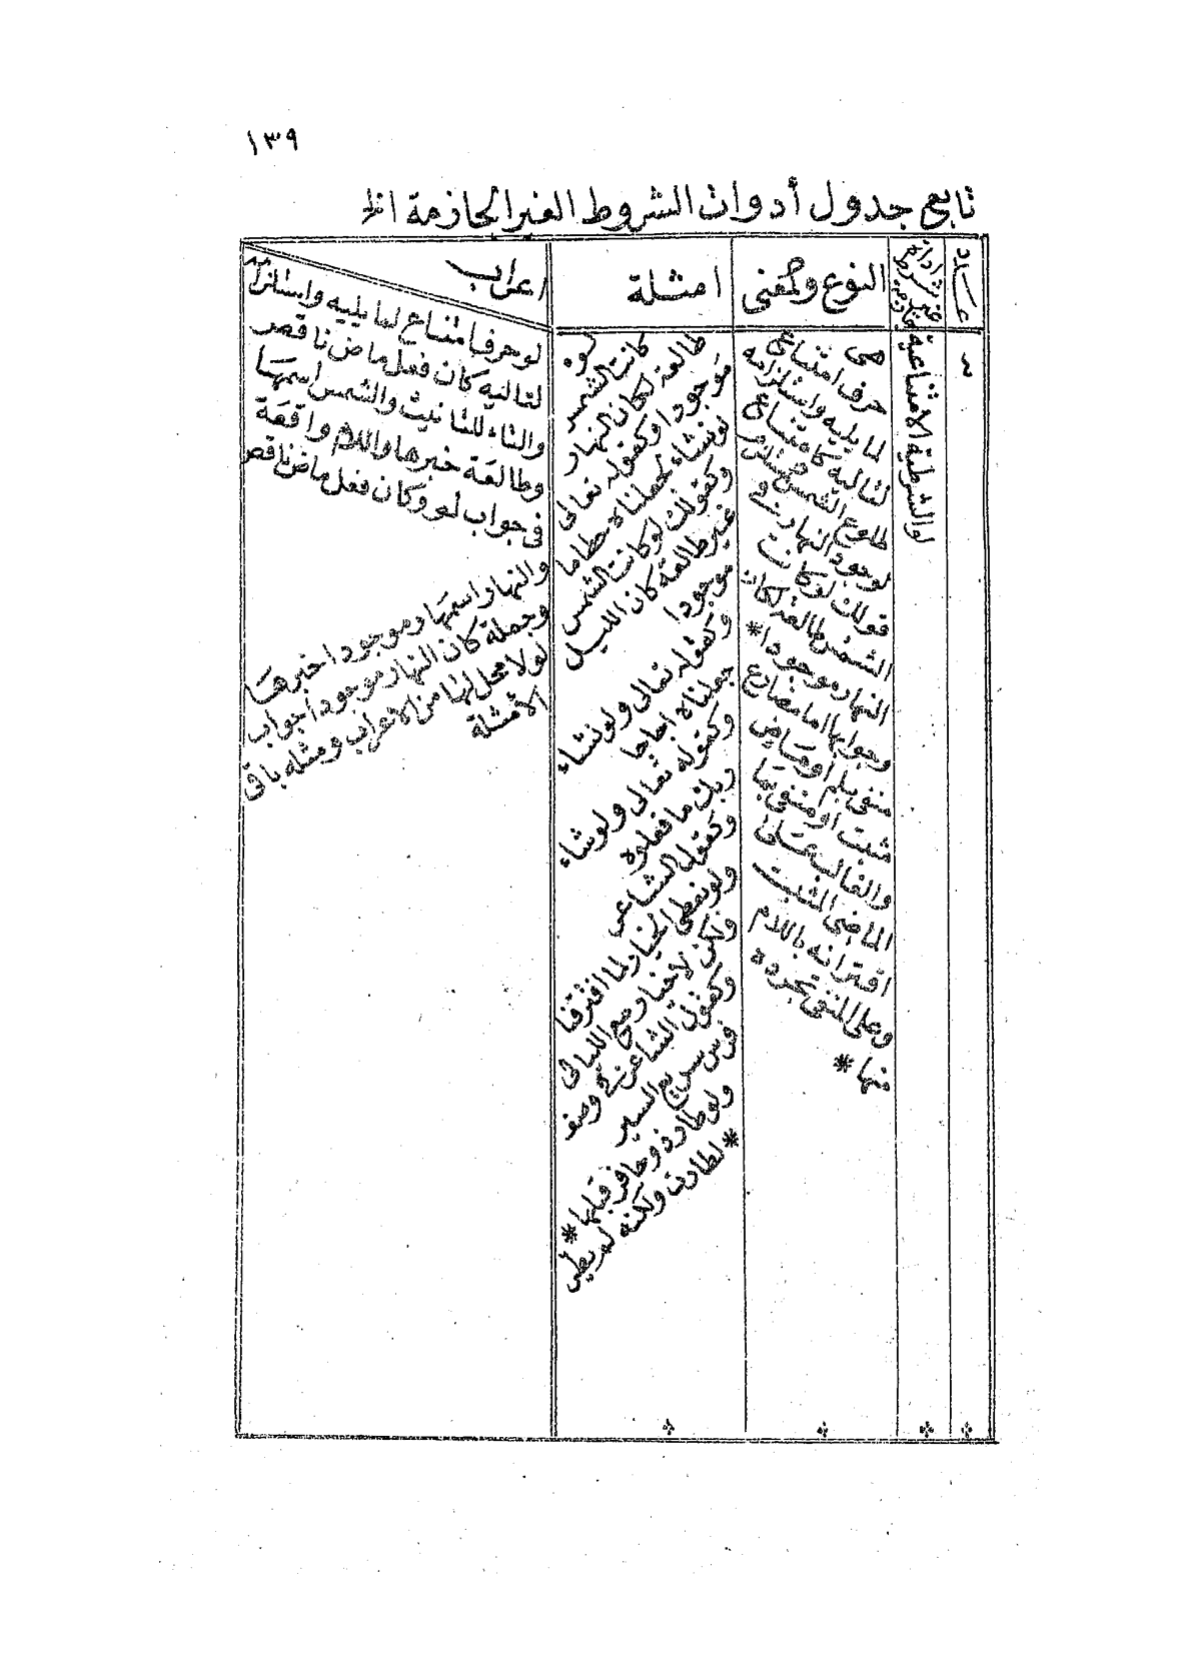 ١٣٩
تابع جدول أدوات الشروط الغير الجازمة الخ
عـــدد
ادات غير شرط جازمة
النوع والمعنى
امثلة
اعراب
٢
لو الشرطية الامتناعية
هى
حرف امتناع
لما يليه واستلزامه
لتاليه كامتناع
طلوع الشمس مستلزم
لوجود النهار فى
قولك لو كانت
الشمس طالعة لكان
النهار موجودا *
وجوابها اما مضارع
منفى بلم او ماض
مثبت او منفى بما
والغالب على
الماضى المثبت
اقترانه باللام
وعلى المنفى تجرده
منها *
لو
كانت الشمس
طالعة لكان النهار
موجودا وكقوله تعالى
لو نشاء لجعلناه حطاما
وكقولك لو كانت الشمس
غير طالعة كان الليل
موجودا
وكقوله تعالى ولو نشاء
جعلناه اجاجا
وكقوله تعالى ولو شاء
ربك ما فعلوه
وكقول الشاعر
ولو نعطى الخيار لما افترقنا
ولكن لا خيار مع الليالى
وكقول الشاعر فى وصف
فرس سريع السير
ولو طار ذو حافر قبلها *
* لطارت ولكنه لم يطير
لو حرف امتناع لما يليه واستلزامه
لتاليه كان فعل ماض ناقص
والتاء للتانيث والشمس اسمها
وطالعة خبرها واللام واقعة
فى جواب لو وكان فعل ماض ناقص
والنهار اسمها وموجودا خبرها
وجملة كان النهار موجودا جواب
لو لا محل لها من الاعراب ومثله باقى
الأمثلة